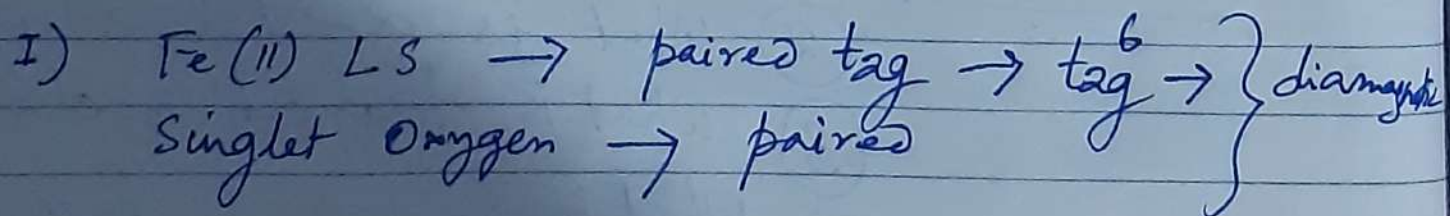 I) Fe (II) LS → paired t2g → t2g⁶ → } diamagnetic
Singlet Oxygen → paired